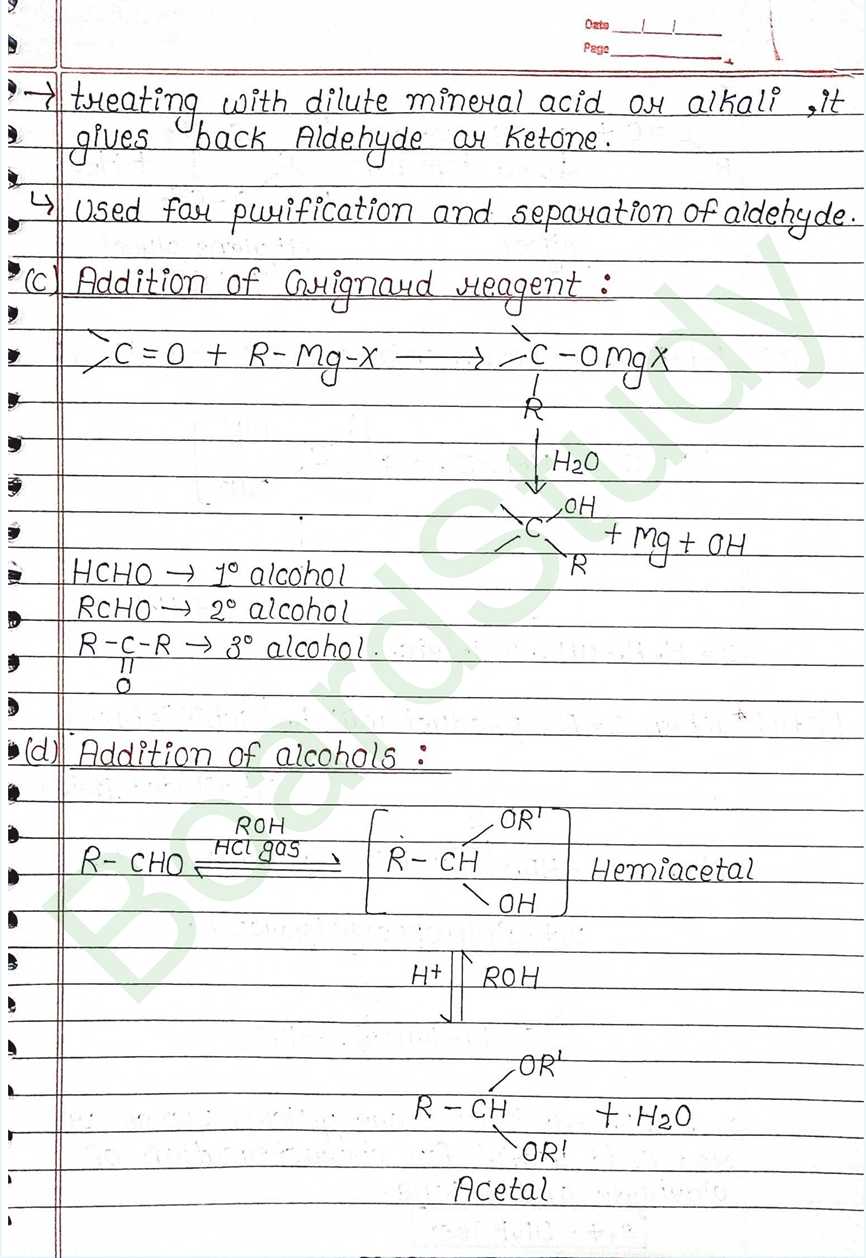 Date / /
Page
→ treating with dilute mineral acid or alkali, it
gives back Aldehyde or Ketone.
↳ used for purification and separation of aldehyde.
(c) Addition of Grignard reagent :
>C=O + R-Mg-X → C-OMgX
R
↓ H2O
C OH R + Mg + OH
HCHO → 1° alcohol
RCHO → 2° alcohol
R-C-R → 3° alcohol.
O
(d) Addition of alcohols :
ROH
HCl gas
R-CHO ⇌ [R-CH OR' OH] Hemiacetal
H+ ROH
OR'
R-CH + H2O
OR'
Acetal
BoardStudy